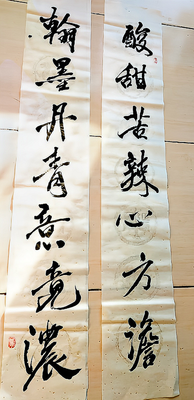 酸甜苦辣心方澹
翰墨丹青意竟濃